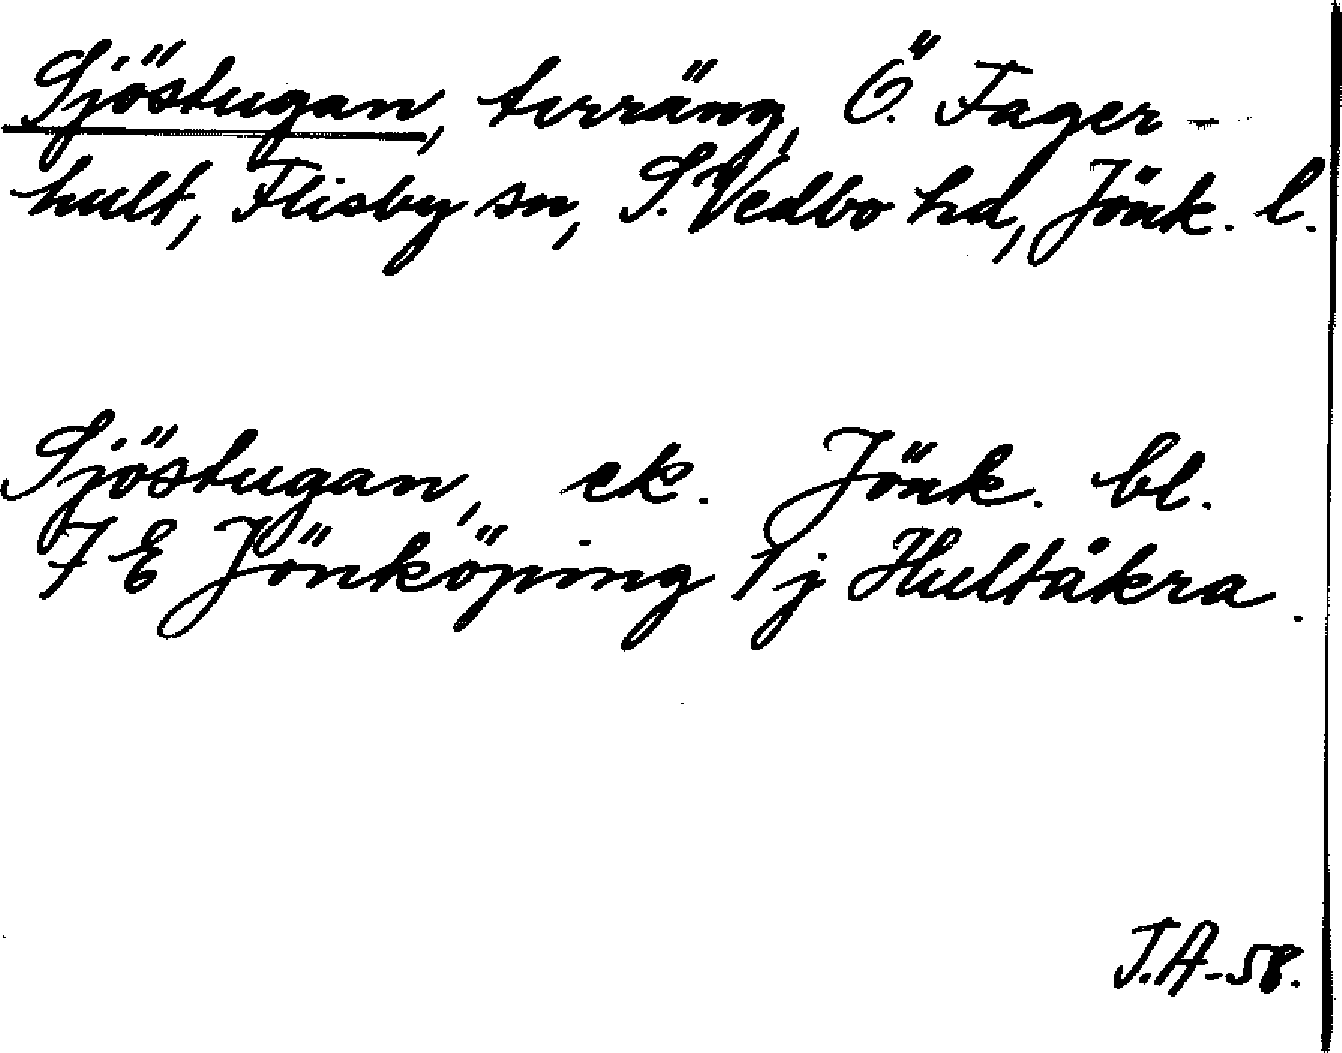 Sjöstugan, terräng, Ö. Fager-
hult, Flisby sn, S. Vedbo hd, Jönk. l.
Sjöstugan, ek. Jönk. bl.
7 E Jönköping 1j Hultåkra.
J.A-58.